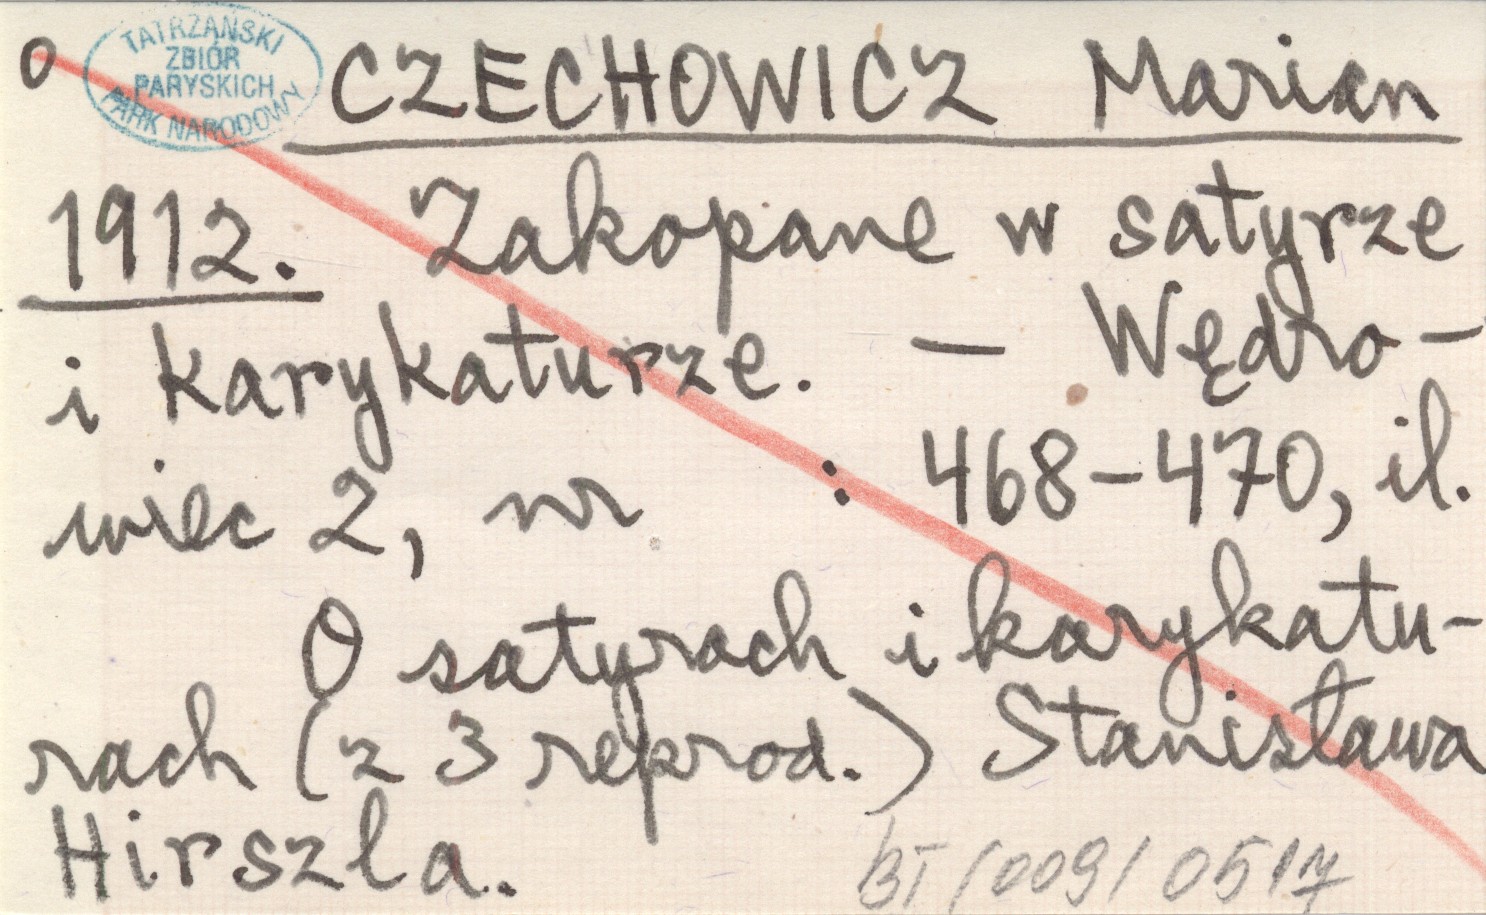 o
TATRZAŃSKI
ZBIÓR
PARYSKICH
PARK NARODOWY
CZECHOWICZ Marian
1912. Zakopane w satyrze
i karykaturze. — Wędro-
wiec 2, nr : 468-470, il.
O satyrach i karykatu-
rach (z 3 reprod.) Stanisława
Hirszla.
BT/009/0517